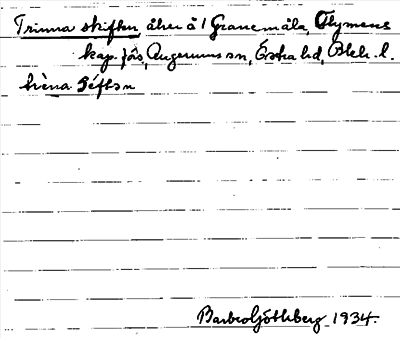 Trinna skiften åker å 1 Granemåla, Elymens
kap.förs, Augerums sn, Östra hd, Blek. l.
Barbro Götheberg 1934.